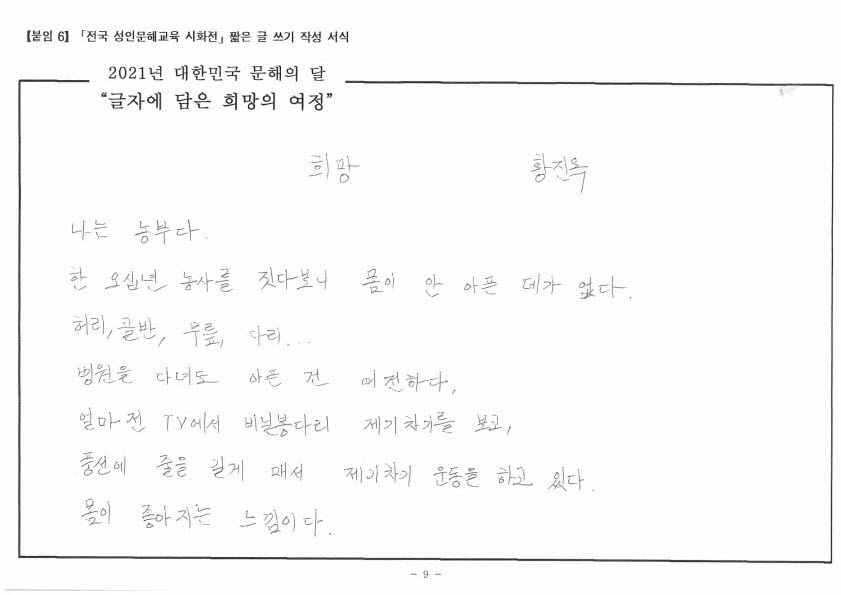 【붙임 6】 「전국 성인문해교육 시화전」 짧은 글 쓰기 작성 서식
2021년 대한민국 문해의 달
“글자에 담은 희망의 여정”
희망 황진옥
나는 농부다.
한 오십년 농사를 짓다보니 몸이 안 아픈 데가 없다.
허리, 골반, 무릎, 다리...
병원을 다녀도 아픈 건 여전하다,
얼마전 TV에서 비닐봉다리 제기차기를 보고,
풍선에 줄을 길게 매서 제기차기 운동을 하고 있다.
몸이 좋아지는 느낌이다.
- 9 -